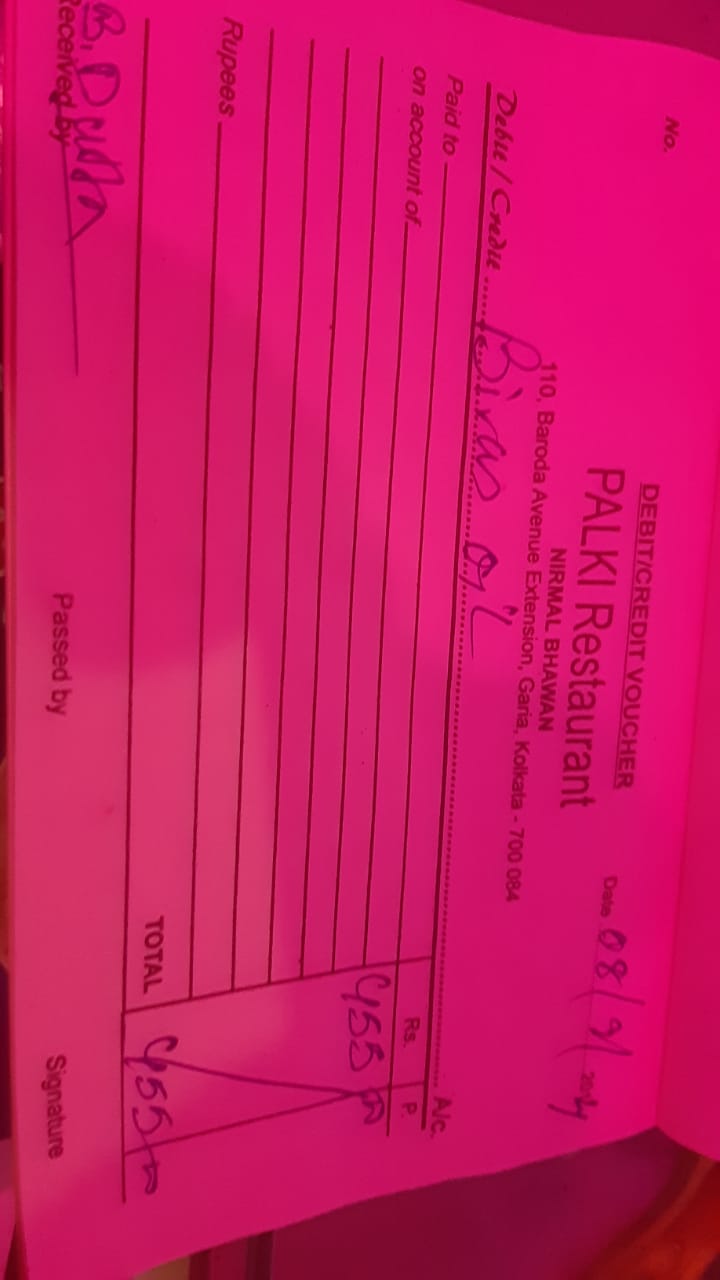 No.
DEBIT/CREDIT VOUCHER
PALKI Restaurant
NIRMAL BHAWAN
110, Baroda Avenue Extension, Garia, Kolkata - 700 084
Date 08/9/2024
Debit / Credit Bikas Oil A/c.
Paid to
on account of Rs. P.
455 00
Rupees
TOTAL 455 00
B. Dutta
Received by Passed by Signature